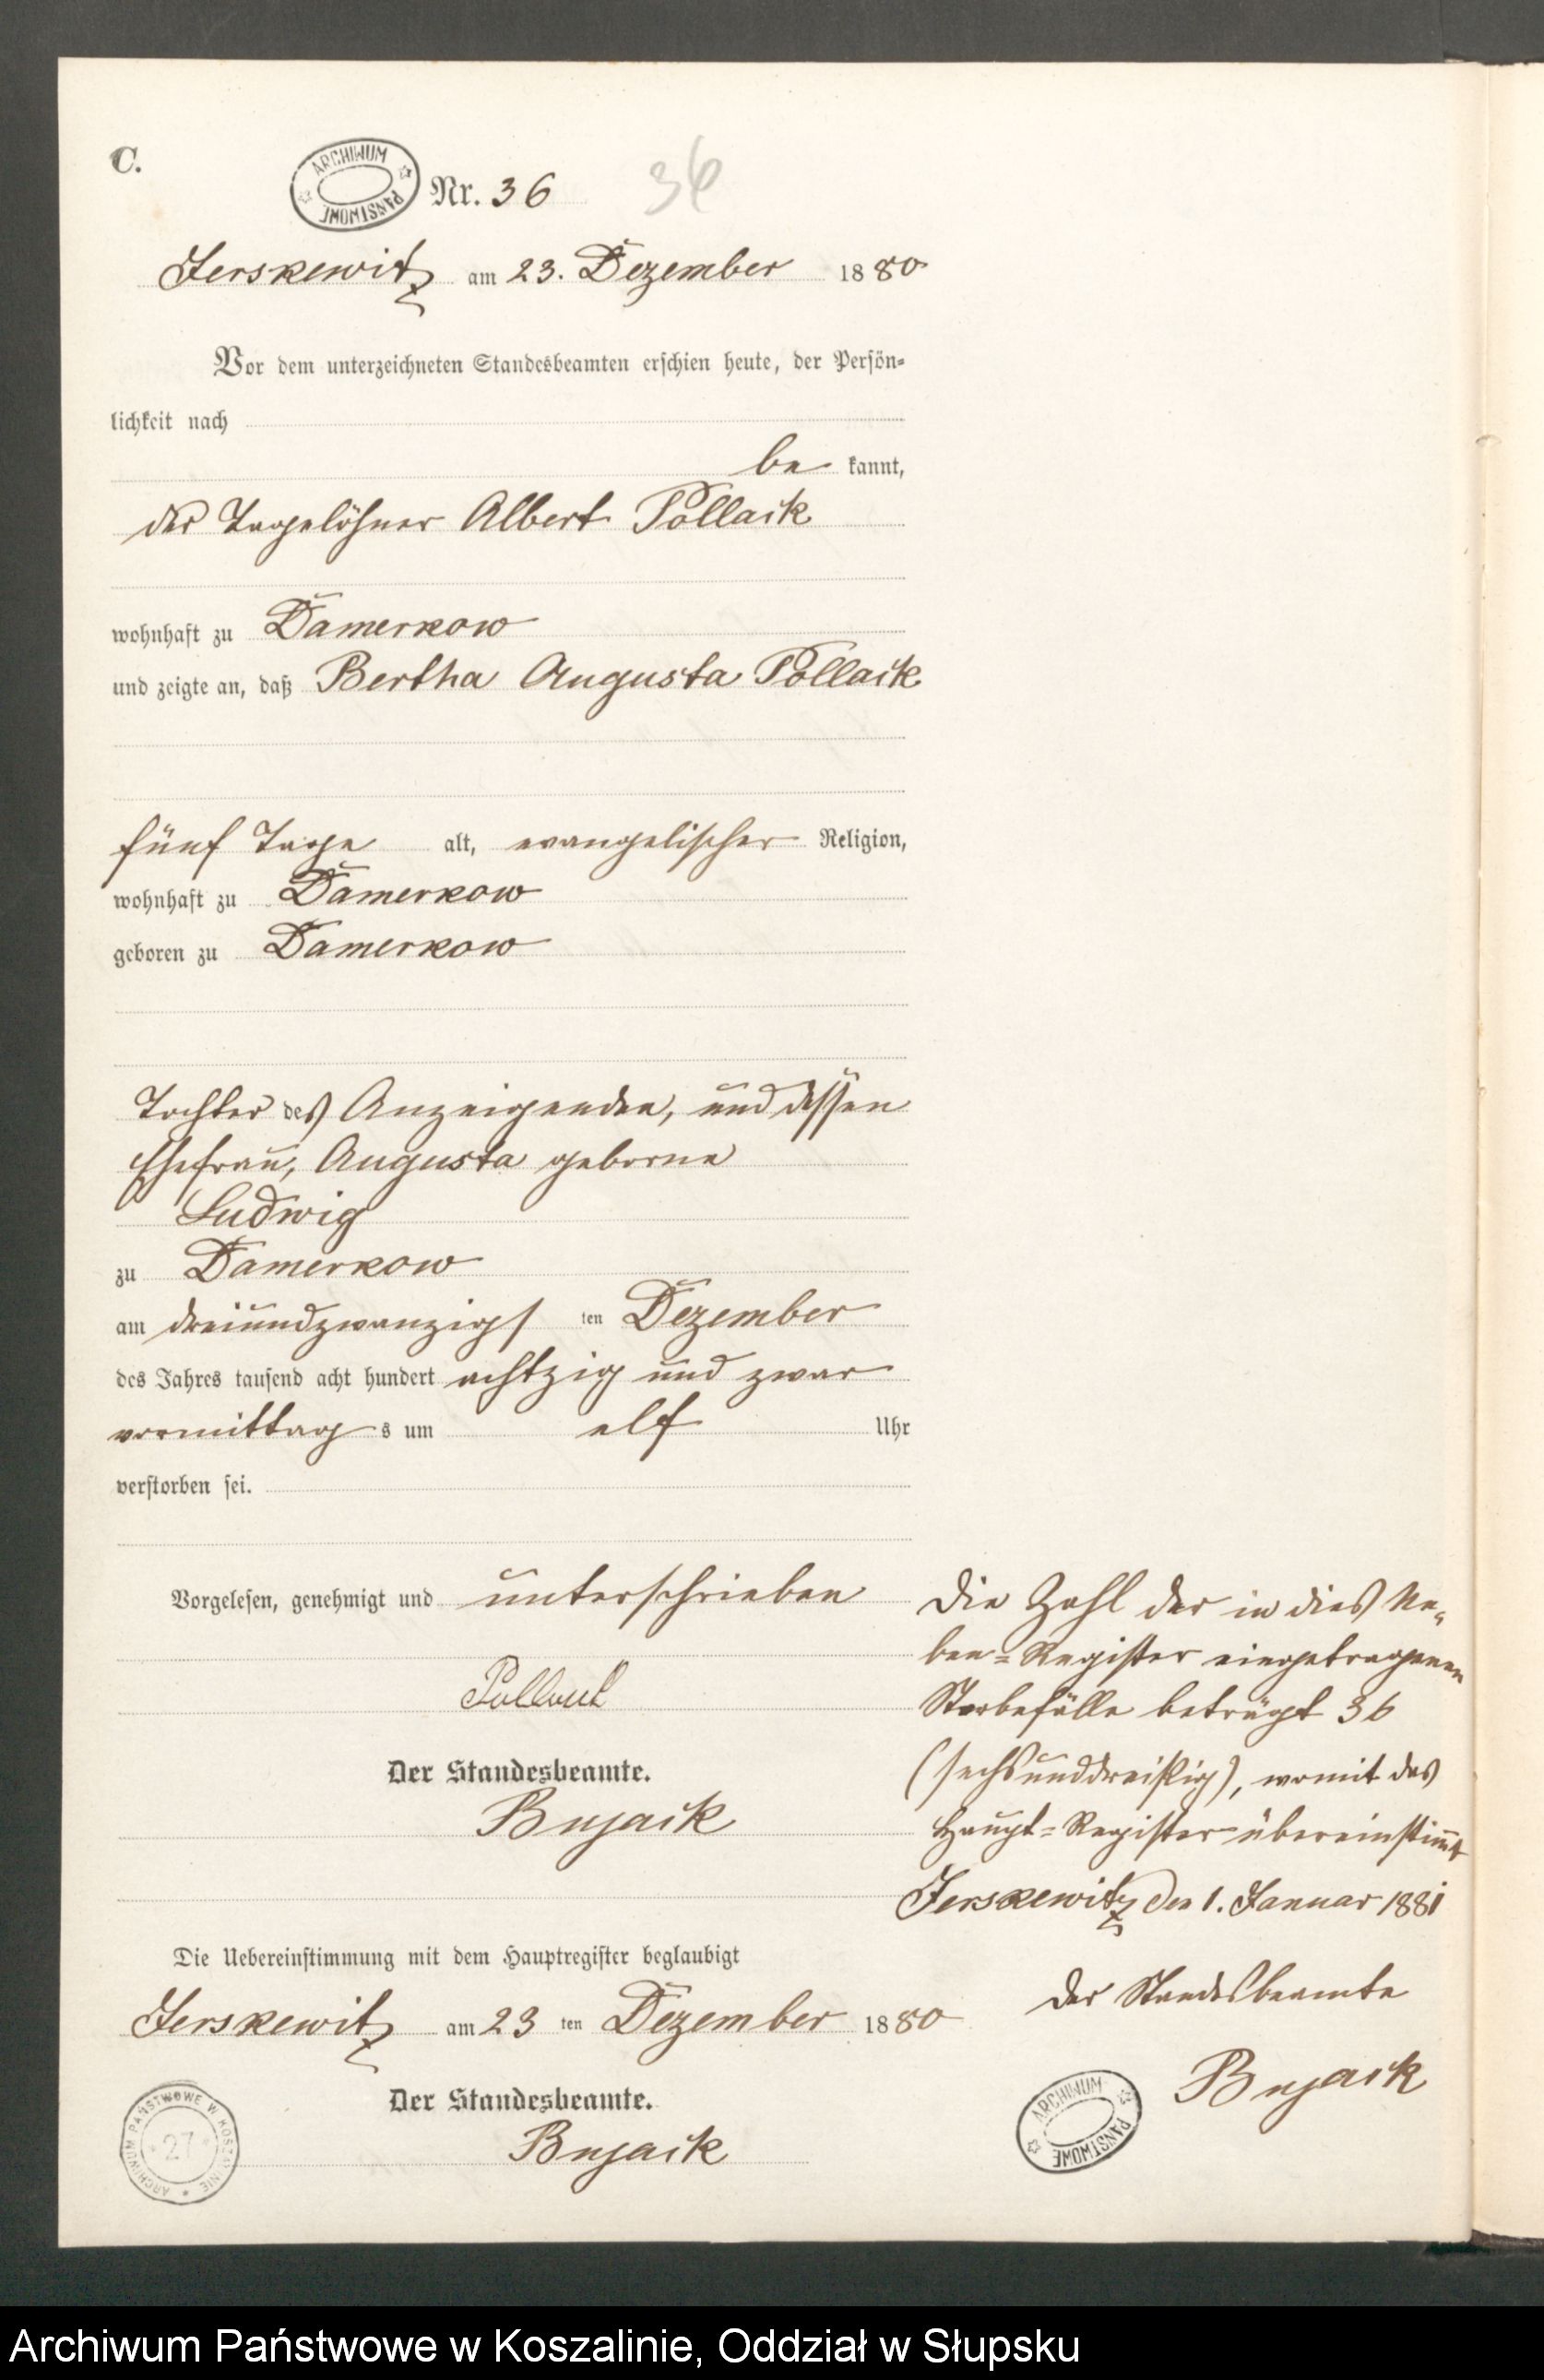 C.
ARCHIWUM PAŃSTWOWE
Nr. 36
36
Jerskewitz am 23. Dezember 1880
Vor dem unterzeichneten Standesbeamten erschien heute, der Persön=
lichkeit nach
be kannt,
der Tagelöhner Albert Pollack
wohnhaft zu Damerkow
und zeigte an, daß Bertha Augusta Pollack
fünf Tage alt, evangelischer Religion,
wohnhaft zu Damerkow
geboren zu Damerkow
Tochter des Anzeigenden, und dessen
Ehefrau, Augusta geborne
Ludwig
zu Damerkow
am dreiundzwanzigsten Dezember
des Jahres tausend acht hundert achtzig und zwar
vormittags um elf Uhr
verstorben sei.
Vorgelesen, genehmigt und unterschrieben
Pollack
Der Standesbeamte.
Bujack
Die Uebereinstimmung mit dem Hauptregister beglaubigt
Jerskewitz am 23 ten Dezember 1880
Der Standesbeamte.
Bujack
ARCHIWUM PAŃSTWOWE W KOSZALINIE
27
Die Zahl der in dies Ne=
ben=Register eingetragenen
Sterbefälle beträgt 36
(sechsunddreißig), womit das
Haupt=Register übereinstimmt
Jerskewitz den 1. Januar 1881
Der Standesbeamte
Bujack
ARCHIWUM PAŃSTWOWE
Archiwum Państwowe w Koszalinie, Oddział w Słupsku